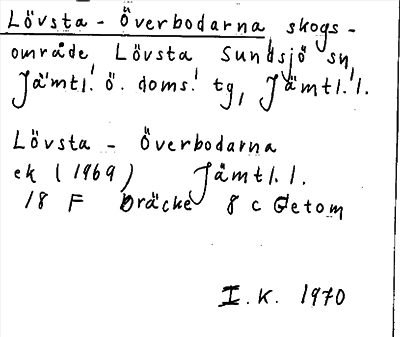 Lövsta - Överbodarna, skogs-
område, Lövsta Sundsjö sn,
Jämtl.' ö. doms.' tg, Jämtl. l.
Lövsta - Överbodarna
ek (1969) Jämtl. l.
18 F Bräcke 8 c Getom
I. K. 1970